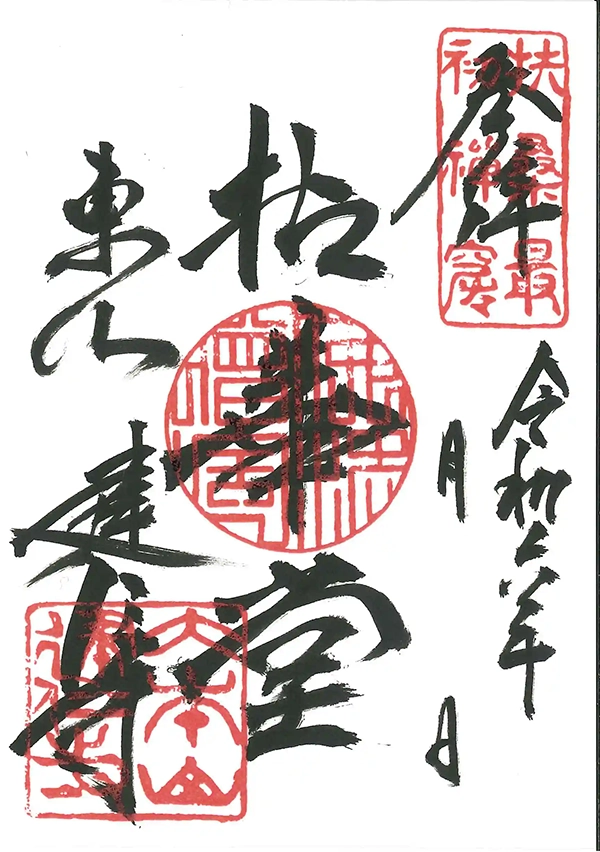 奉拝
扶桑最
初禪窟
令和六年
月　日
拈華堂
東山　建仁寺
大本山
建仁寺